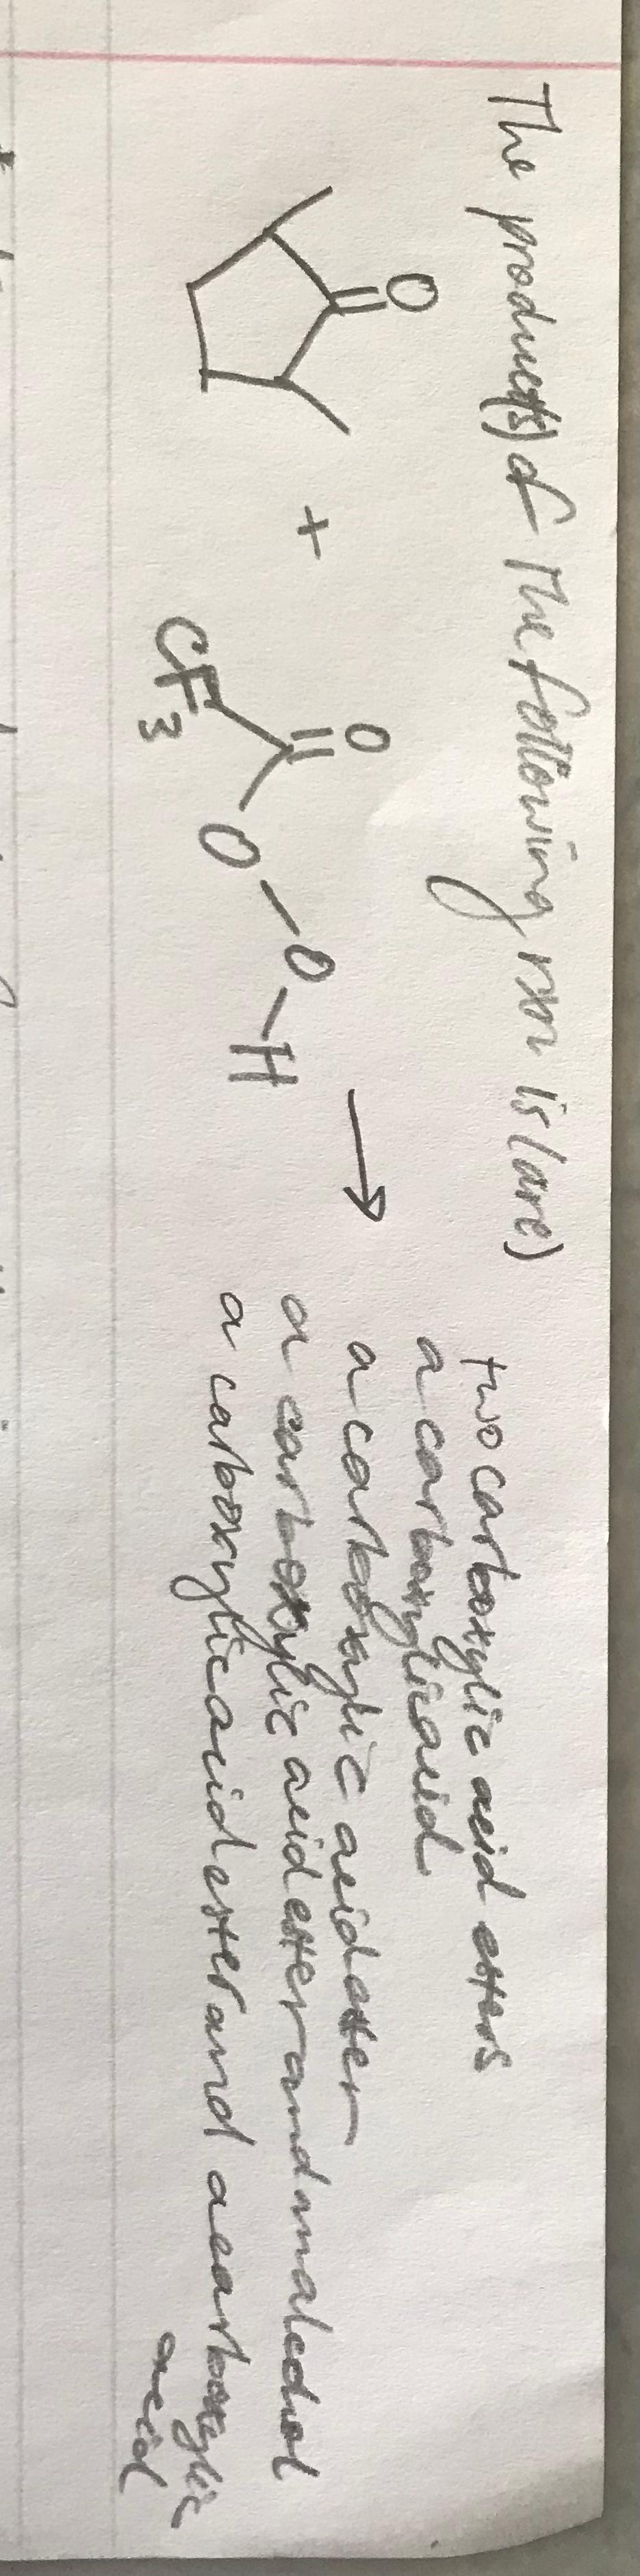 The product(s) of the following rxn is (are)
O
+
CF3
O
O
O
H
→
two carboxylic acid esters
a carboxylic acid
a carboxylic acid ester
a carboxylic acid ester and an alcohol
a carboxylic acid ester and a carboxylic
acid